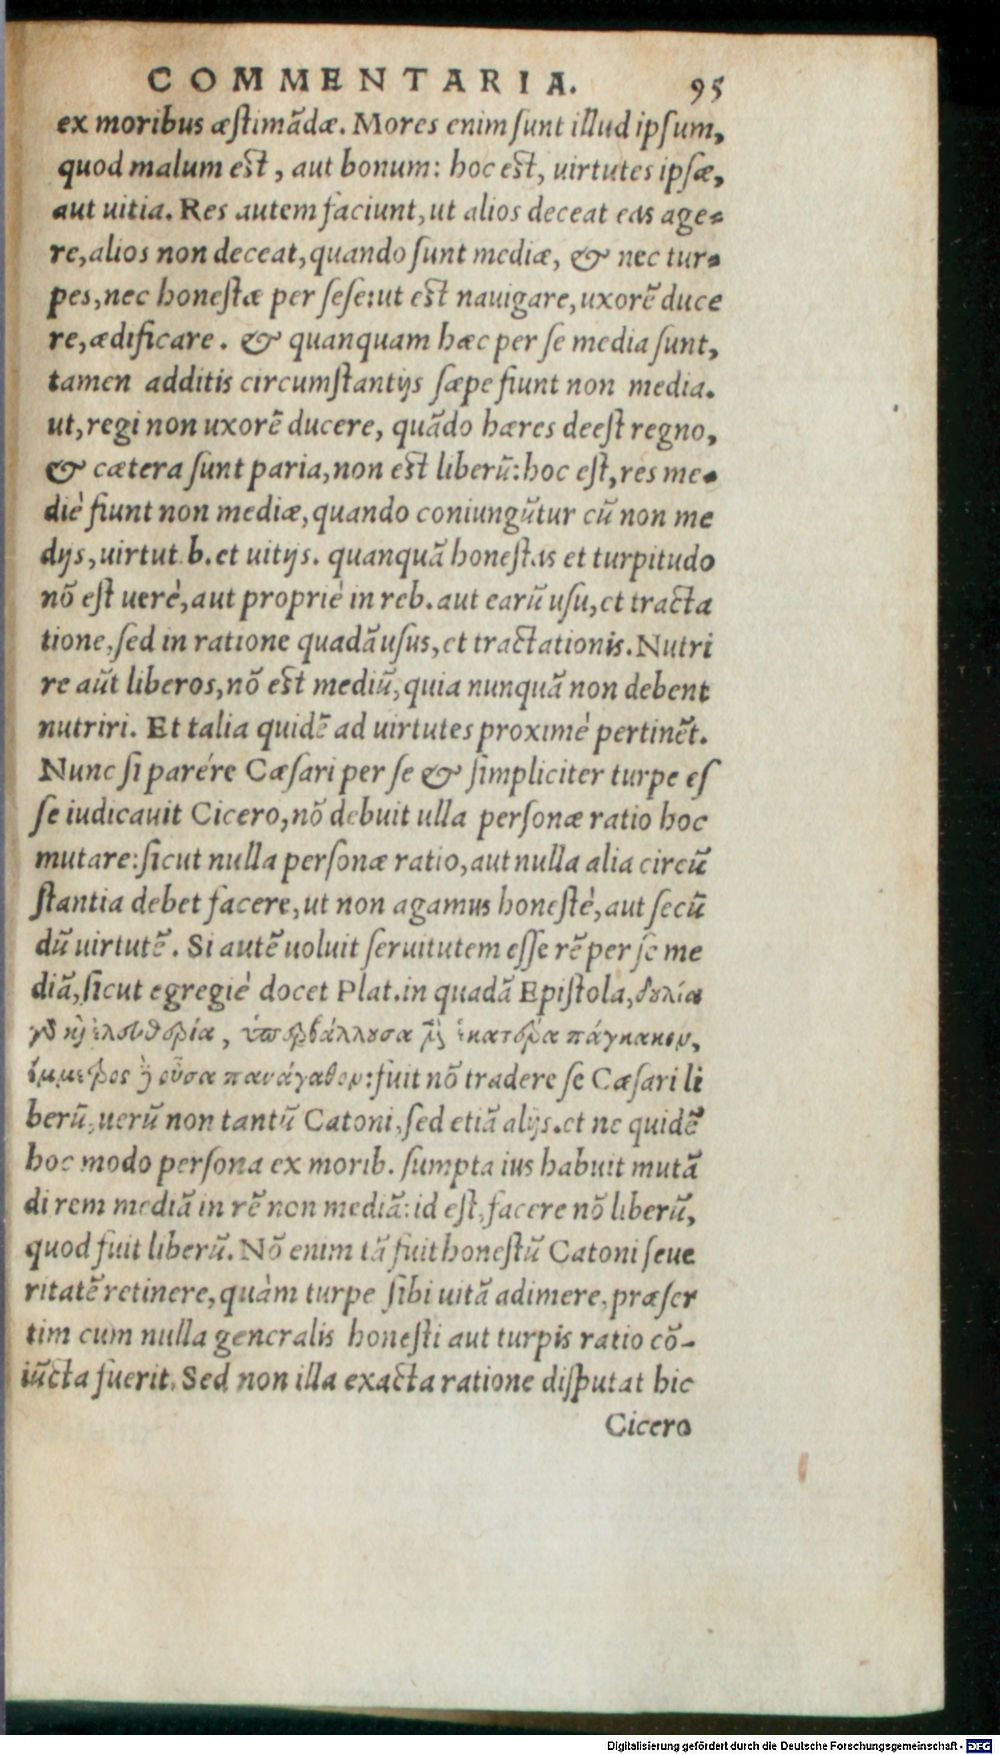 COMMENTARIA. 95
ex moribus æstimãdæ. Mores enim sunt illud ipsum,
quod malum est, aut bonum: hoc est, uirtutes ipsæ,
aut uitia. Res autem faciunt, ut alios deceat eas age-
re, alios non deceat, quando sunt mediæ, & nec tur-
pes, nec honestæ per sese: ut est nauigare, uxorẽ duce
re, ædificare. & quanquam hæc per se media sunt,
tamen additis circumstantijs sæpe fiunt non media.
ut, regi non uxorẽ ducere, quãdo hæres deest regno,
& cætera sunt paria, non est liberũ: hoc est, res me-
diè fiunt non mediæ, quando coniungũtur cũ non me
dijs, uirtut.b. et uitijs. quanquã honestas et turpitudo
nõ est uerè, aut propriè in reb. aut earũ usu, et tracta
tione, sed in ratione quadã usus, et tractationis. Nutri
re aũt liberos, nõ est mediũ, quia nunquã non debent
nutriri. Et talia quidẽ ad uirtutes proximè pertinẽt.
Nunc si parére Cæsari per se & simpliciter turpe es
se iudicauit Cicero, nõ debuit ulla personæ ratio hoc
mutare: sicut nulla personæ ratio, aut nulla alia circũ
stantia debet facere, ut non agamus honestè, aut secũ
dũ uirtutẽ. Si autẽ uoluit seruitutem esse rẽ per se me
diã, sicut egregiè docet Plat. in quadã Epistola, δουλία
γὸ κὶ ἐλευθερία, ὑπερβάλλουσα μὲν ἑκατέρα πάγκακον,
ἔμμετρος δὲ οὖσα πανάγαθον: fuit nõ tradere se Cæsari li
berũ, uerũ non tantũ Catoni, sed etiã alijs. et ne quidẽ
hoc modo persona ex morib. sumpta ius habuit mutã
di rem mediã in rẽ non mediã: id est, facere nõ liberũ,
quod fuit liberũ. Nõ enim tã fuit honestũ Catoni seue
ritatẽ retinere, quàm turpe sibi uitã adimere, præser
tim cum nulla generalis honesti aut turpis ratio cõ-
iũcta fuerit. Sed non illa exacta ratione disputat hic
Cicero
Digitalisierung gefördert durch die Deutsche Forschungsgemeinschaft - DFG